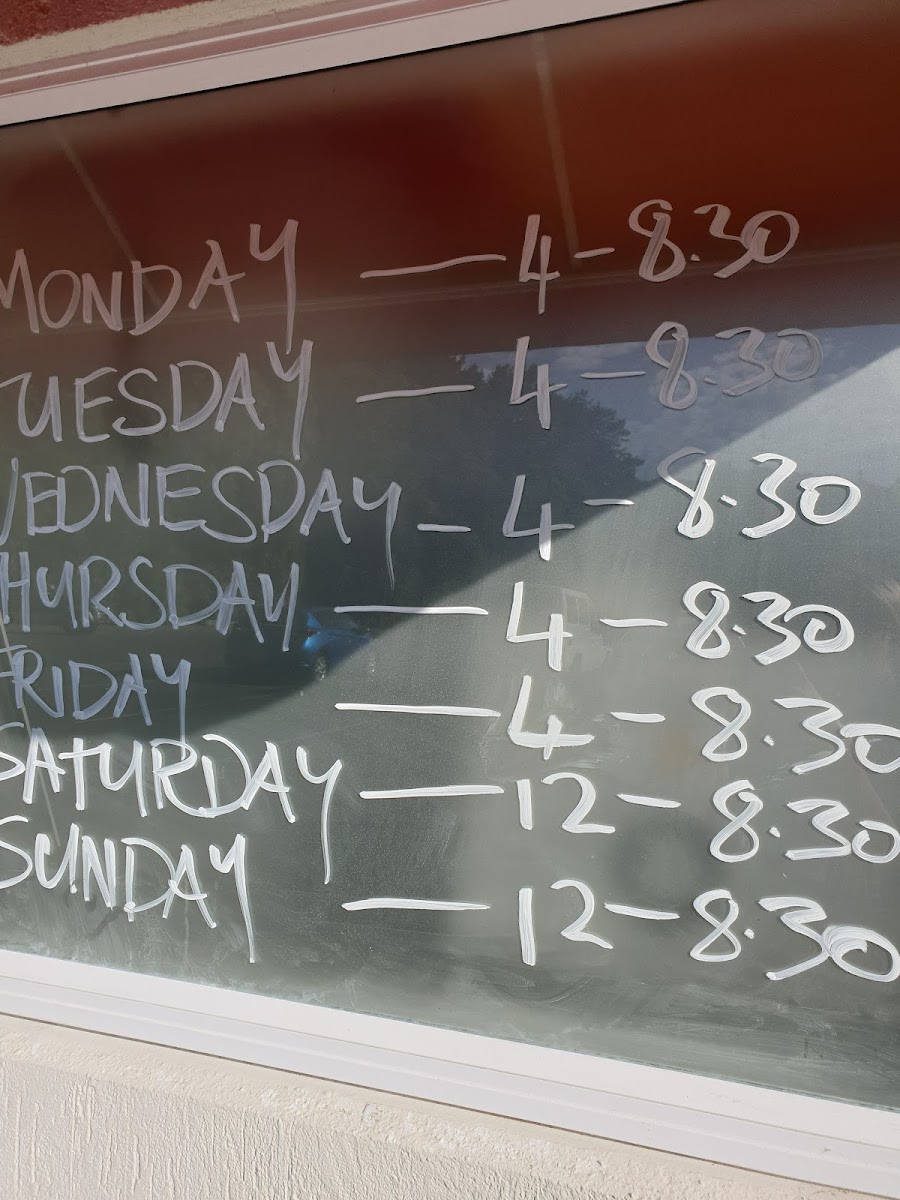 MONDAY — 4 - 8.30
TUESDAY — 4 - 8.30
WEDNESDAY - 4 - 8.30
THURSDAY — 4 - 8.30
FRIDAY — 4 - 8.30
SATURDAY — 12 - 8.30
SUNDAY — 12 - 8.30